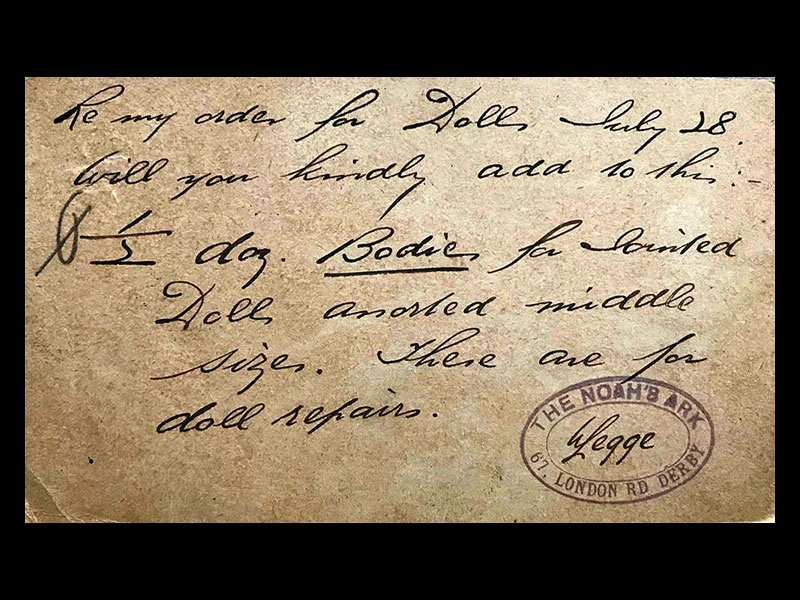 Re my order for Dolls July 28.
Will you kindly add to this:-
1/2 doz. Bodies for Jointed
Dolls assorted middle
sizes. These are for
doll repairs.
THE NOAH'S ARK
Legge
67, LONDON RD DERBY